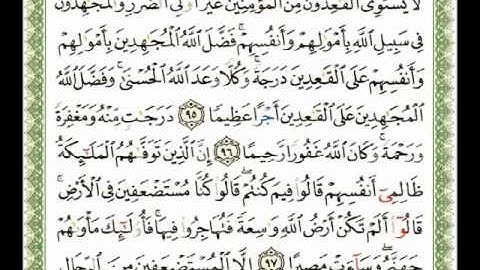 لَّا يَسْتَوِى ٱلْقَـٰعِدُونَ مِنَ ٱلْمُؤْمِنِينَ غَيْرُ أُو۟لِى ٱلضَّرَرِ وَٱلْمُجَـٰهِدُونَ
فِى سَبِيلِ ٱللَّهِ بِأَمْوَٰلِهِمْ وَأَنفُسِهِمْ ۚ فَضَّلَ ٱللَّهُ ٱلْمُجَـٰهِدِينَ بِأَمْوَٰلِهِمْ
وَأَنفُسِهِمْ عَلَى ٱلْقَـٰعِدِينَ دَرَجَةً ۚ وَكُلًّا وَعَدَ ٱللَّهُ ٱلْحُسْنَىٰ ۚ وَفَضَّلَ ٱللَّهُ
ٱلْمُجَـٰهِدِينَ عَلَى ٱلْقَـٰعِدِينَ أَجْرًا عَظِيمًا ٩٥ دَرَجَـٰتٍ مِّنْهُ وَمَغْفِرَةً
وَرَحْمَةً ۚ وَكَانَ ٱللَّهُ غَفُورًا رَّحِيمًا ٩٦ إِنَّ ٱلَّذِينَ تَوَفَّىٰهُمُ ٱلْمَلَـٰٓئِكَةُ
ظَالِمِىٓ أَنفُسِهِمْ قَالُوا۟ فِيمَ كُنتُمْ ۖ قَالُوا۟ كُنَّا مُسْتَضْعَفِينَ فِى ٱلْأَرْضِ ۚ
قَالُوٓا۟ أَلَمْ تَكُنْ أَرْضُ ٱللَّهِ وَٰسِعَةً فَتُهَاجِرُوا۟ فِيهَا ۚ فَأُو۟لَـٰٓئِكَ مَأْوَىٰهُمْ
جَهَنَّمُ ۖ وَسَآءَتْ مَصِيرًا ٩٧ إِلَّا ٱلْمُسْتَضْعَفِينَ مِنَ ٱلرِّجَالِ